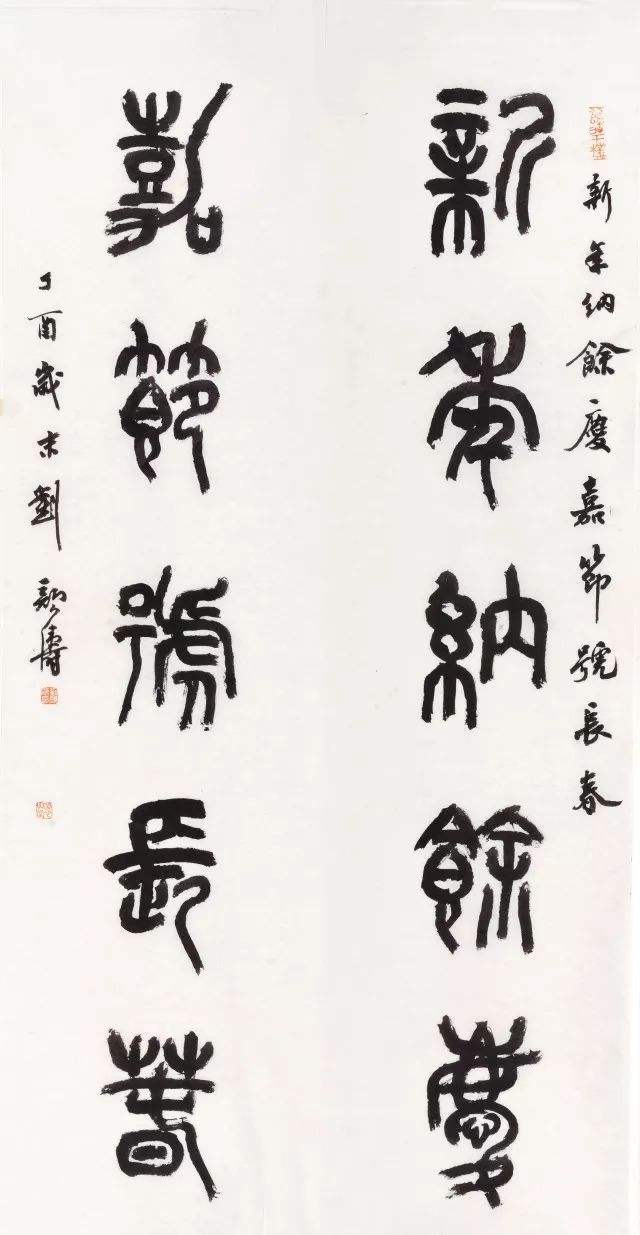 新年納餘慶嘉節號長春
新年納餘慶
嘉節號長春
丁酉歲末劉